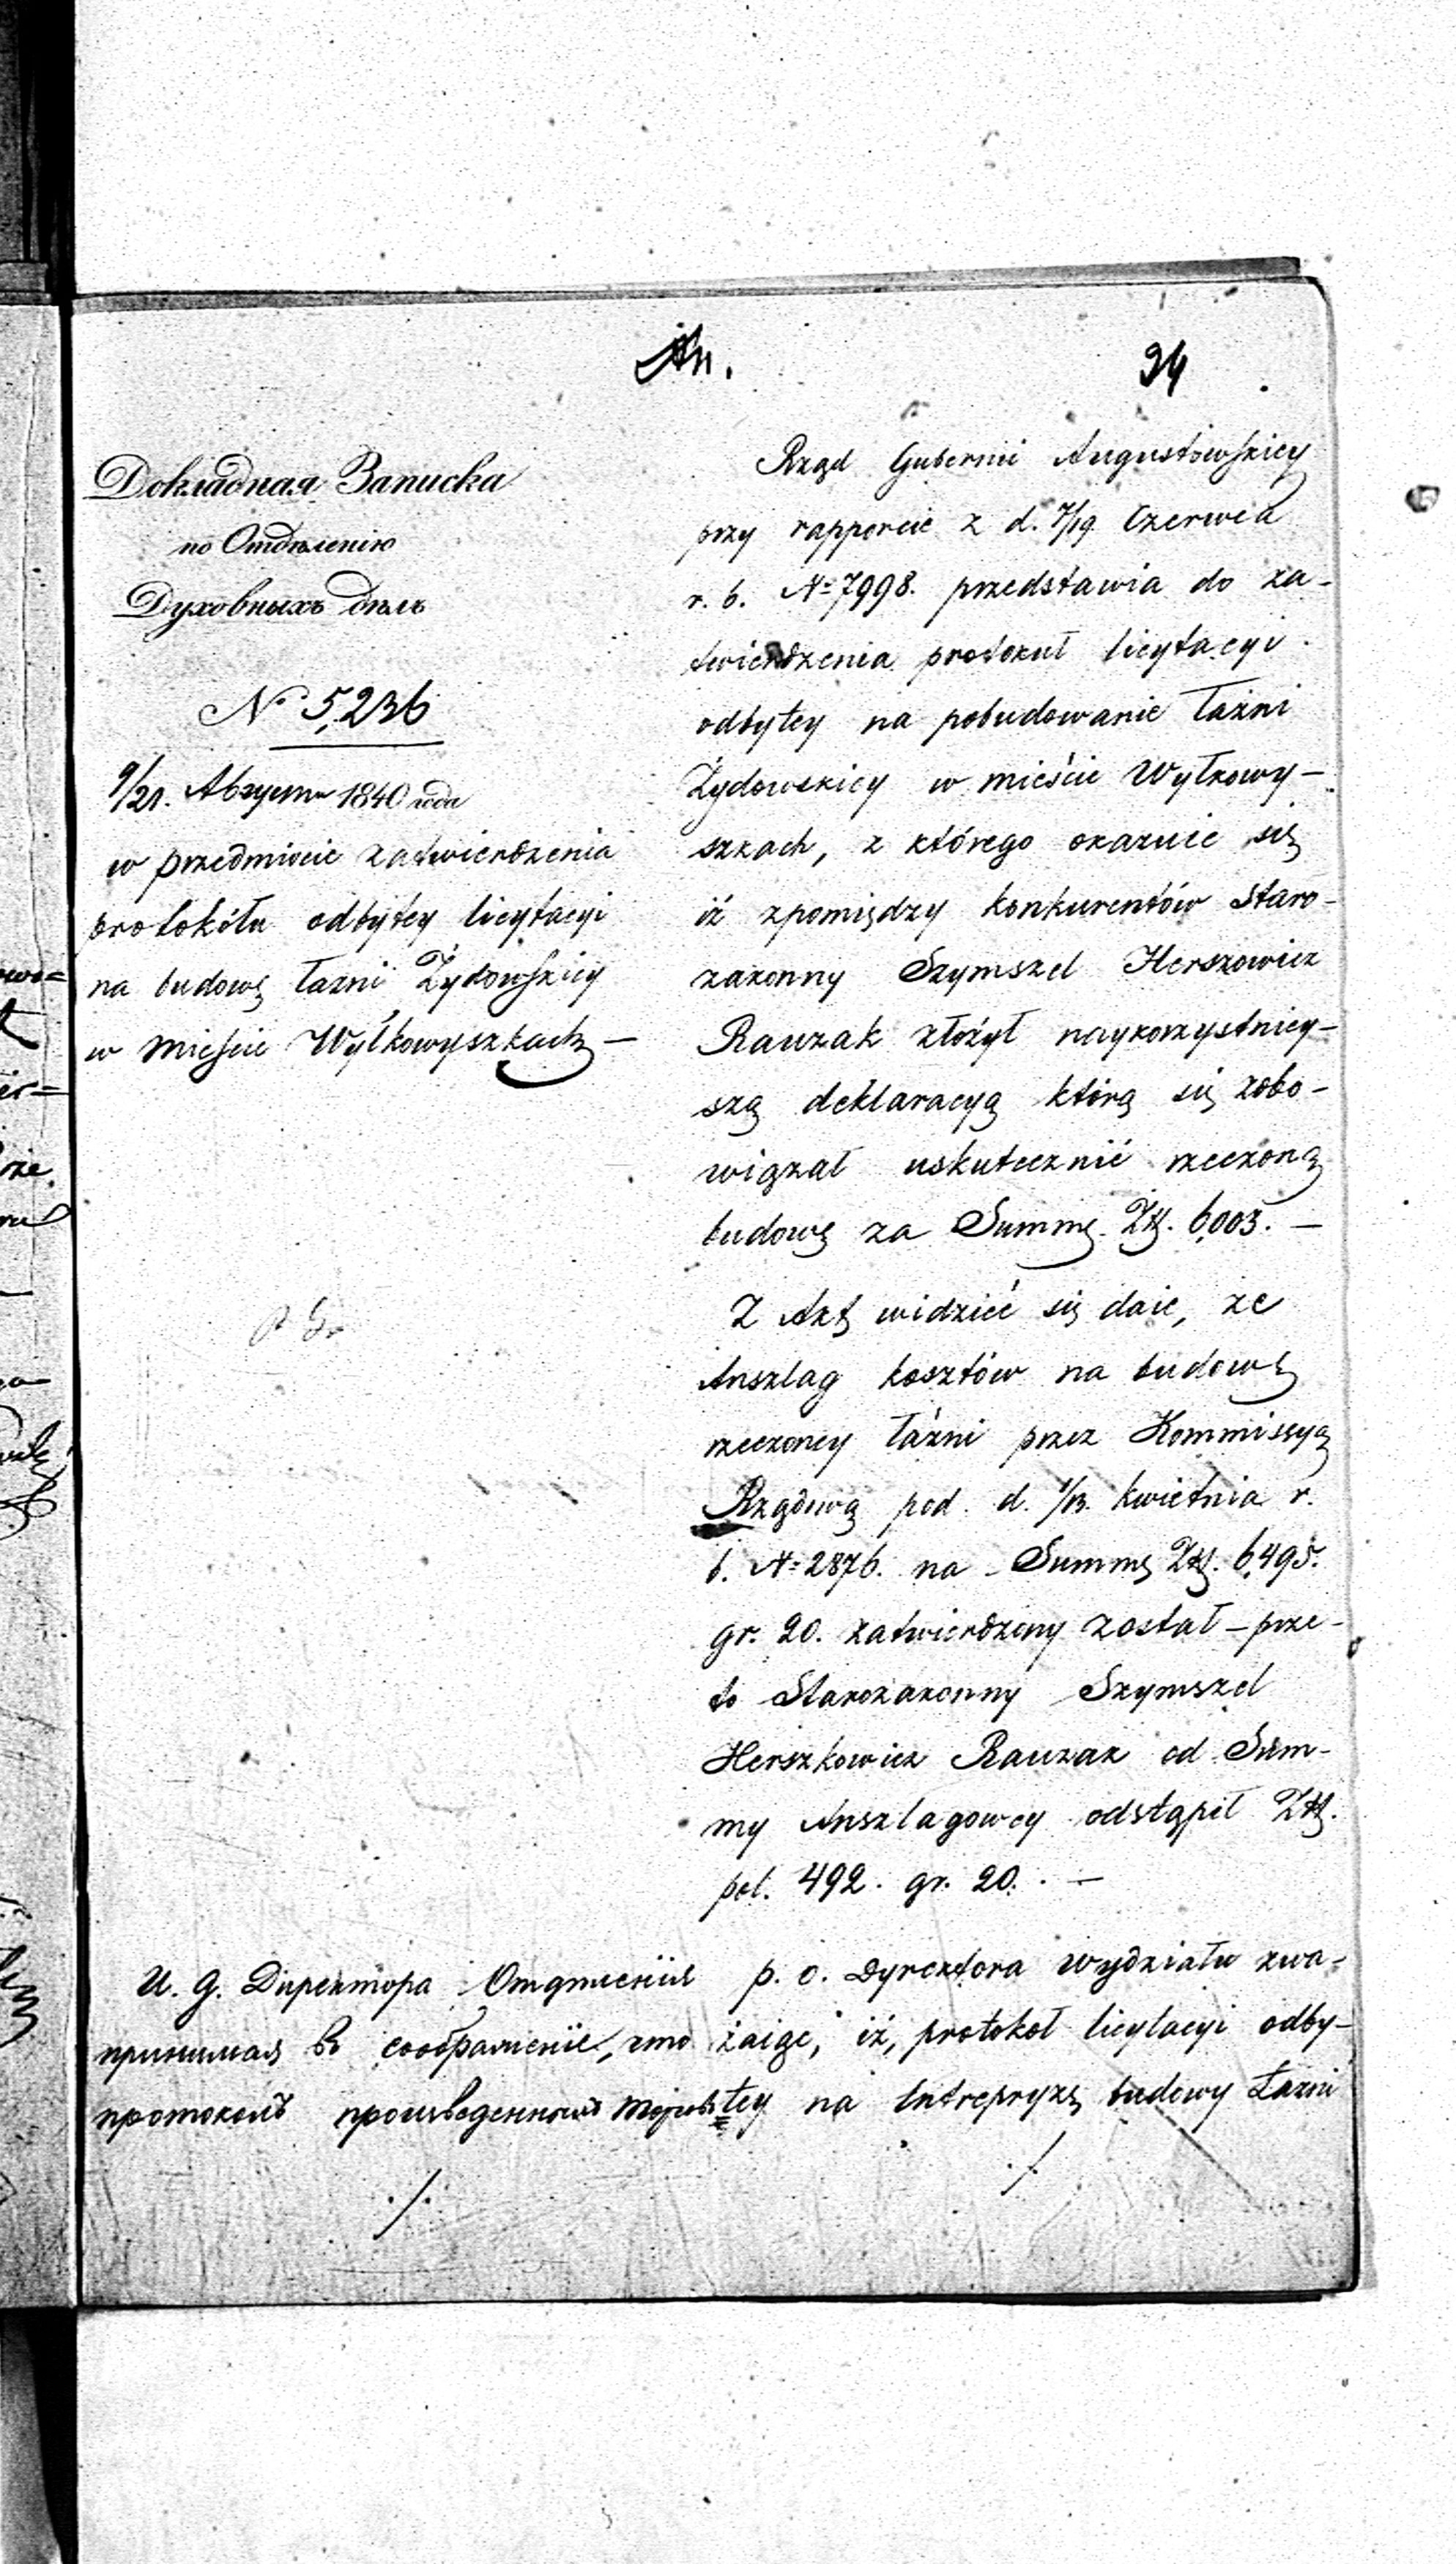 94
Докладная Записка
по Отдѣленію
Духовныхъ дѣлъ
№ 5,236
9/21. Августа 1840 года
w przedmiocie zatwierdzenia
protokółu odbytey licytacyi
na budowę łazni Żydowskiey
w mieście Wyłkowyszkach —
Rząd Gubernii Augustowskiey
przy rapporcie z d. 7/19 Czerwca
r. b. № 7998. przedstawia do za-
twierdzenia protokuł licytacyi
odbyłey na pobudowanie łaźni
Żydowskiey w mieście Wyłkowy-
szkach, z którego okazuie się
iż zpomiędzy konkurentów Staro-
zakonny Szymszel Herszkowicz
Rauzak złożył naykorzystniey-
szą deklaracyą którą się zobo-
wiązał uskutecznić rzeczoną
budowę za Summę Złł. 6,003. —
Z Akt widzieć się daie, że
Anszlag kosztów na budowę
rzeczoney łaźni przez Kommissyą
Rządową pod d. 1/13. kwietnia r.
b. № 2876. na Summę Złł. 6,495.
gr. 20. zatwierdzony został – prze-
to Starozakonny Szymszel
Herszkowicz Rauzak od Sum-
my Anszlagowey odstąpił Złł.
pol. 492. gr. 20. —
И. д. Директора Отдѣленія
принимая въ соображеніе, что
протоколъ произведенныхъ торговъ
p. o. Dyrektora wydziału zwa-
żaiąc, iż, protokoł licytacyi odby-
łey na Entrepryzę budowy Łazni
./.
./.